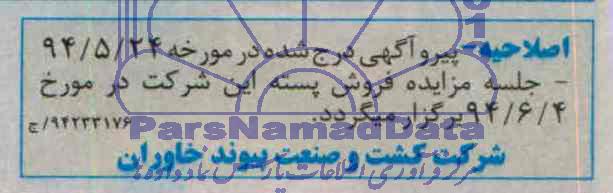 اصلاحیه- پیرو آگهی درج شده در مورخه ۹۴/۵/۲۴
- جلسه مزایده فروش پسته این شرکت در مورخ
۹۴/۶/۴ برگزار میگردد.
۹۴۲۳۳۱۷۶/ع
ParsNamadData
شرکت کشت و صنعت پیوند خاوران
مرکز فرآوری اطلاعات پارس نماد داده ها